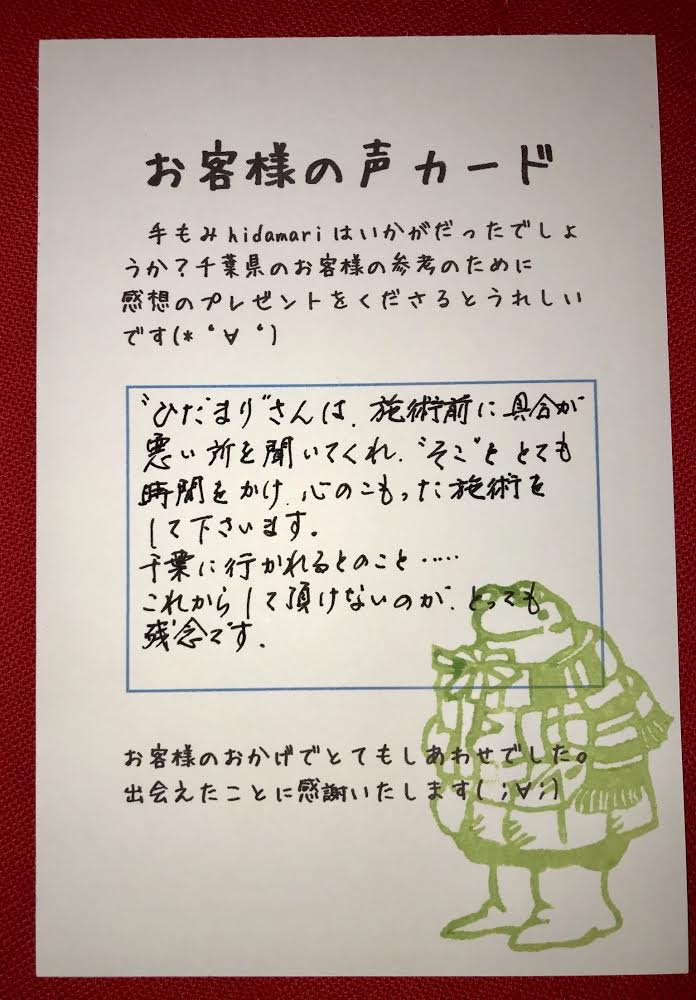 お客様の声カード
手もみhidamariはいかがだったでしょ
うか?千葉県のお客様の参考のために
感想のプレゼントをくださるとうれしい
です(*‘∀‘)
“ひだまり”さんは、施術前に具合が
悪い所を聞いてくれ、“そこ”を とても
時間をかけ、心のこもった施術を
して下さいます。
千葉に行かれるとのこと……
これからして頂けないのが、とっても
残念です。
お客様のおかげでとてもしあわせでした。
出会えたことに感謝いたします(;∀;)